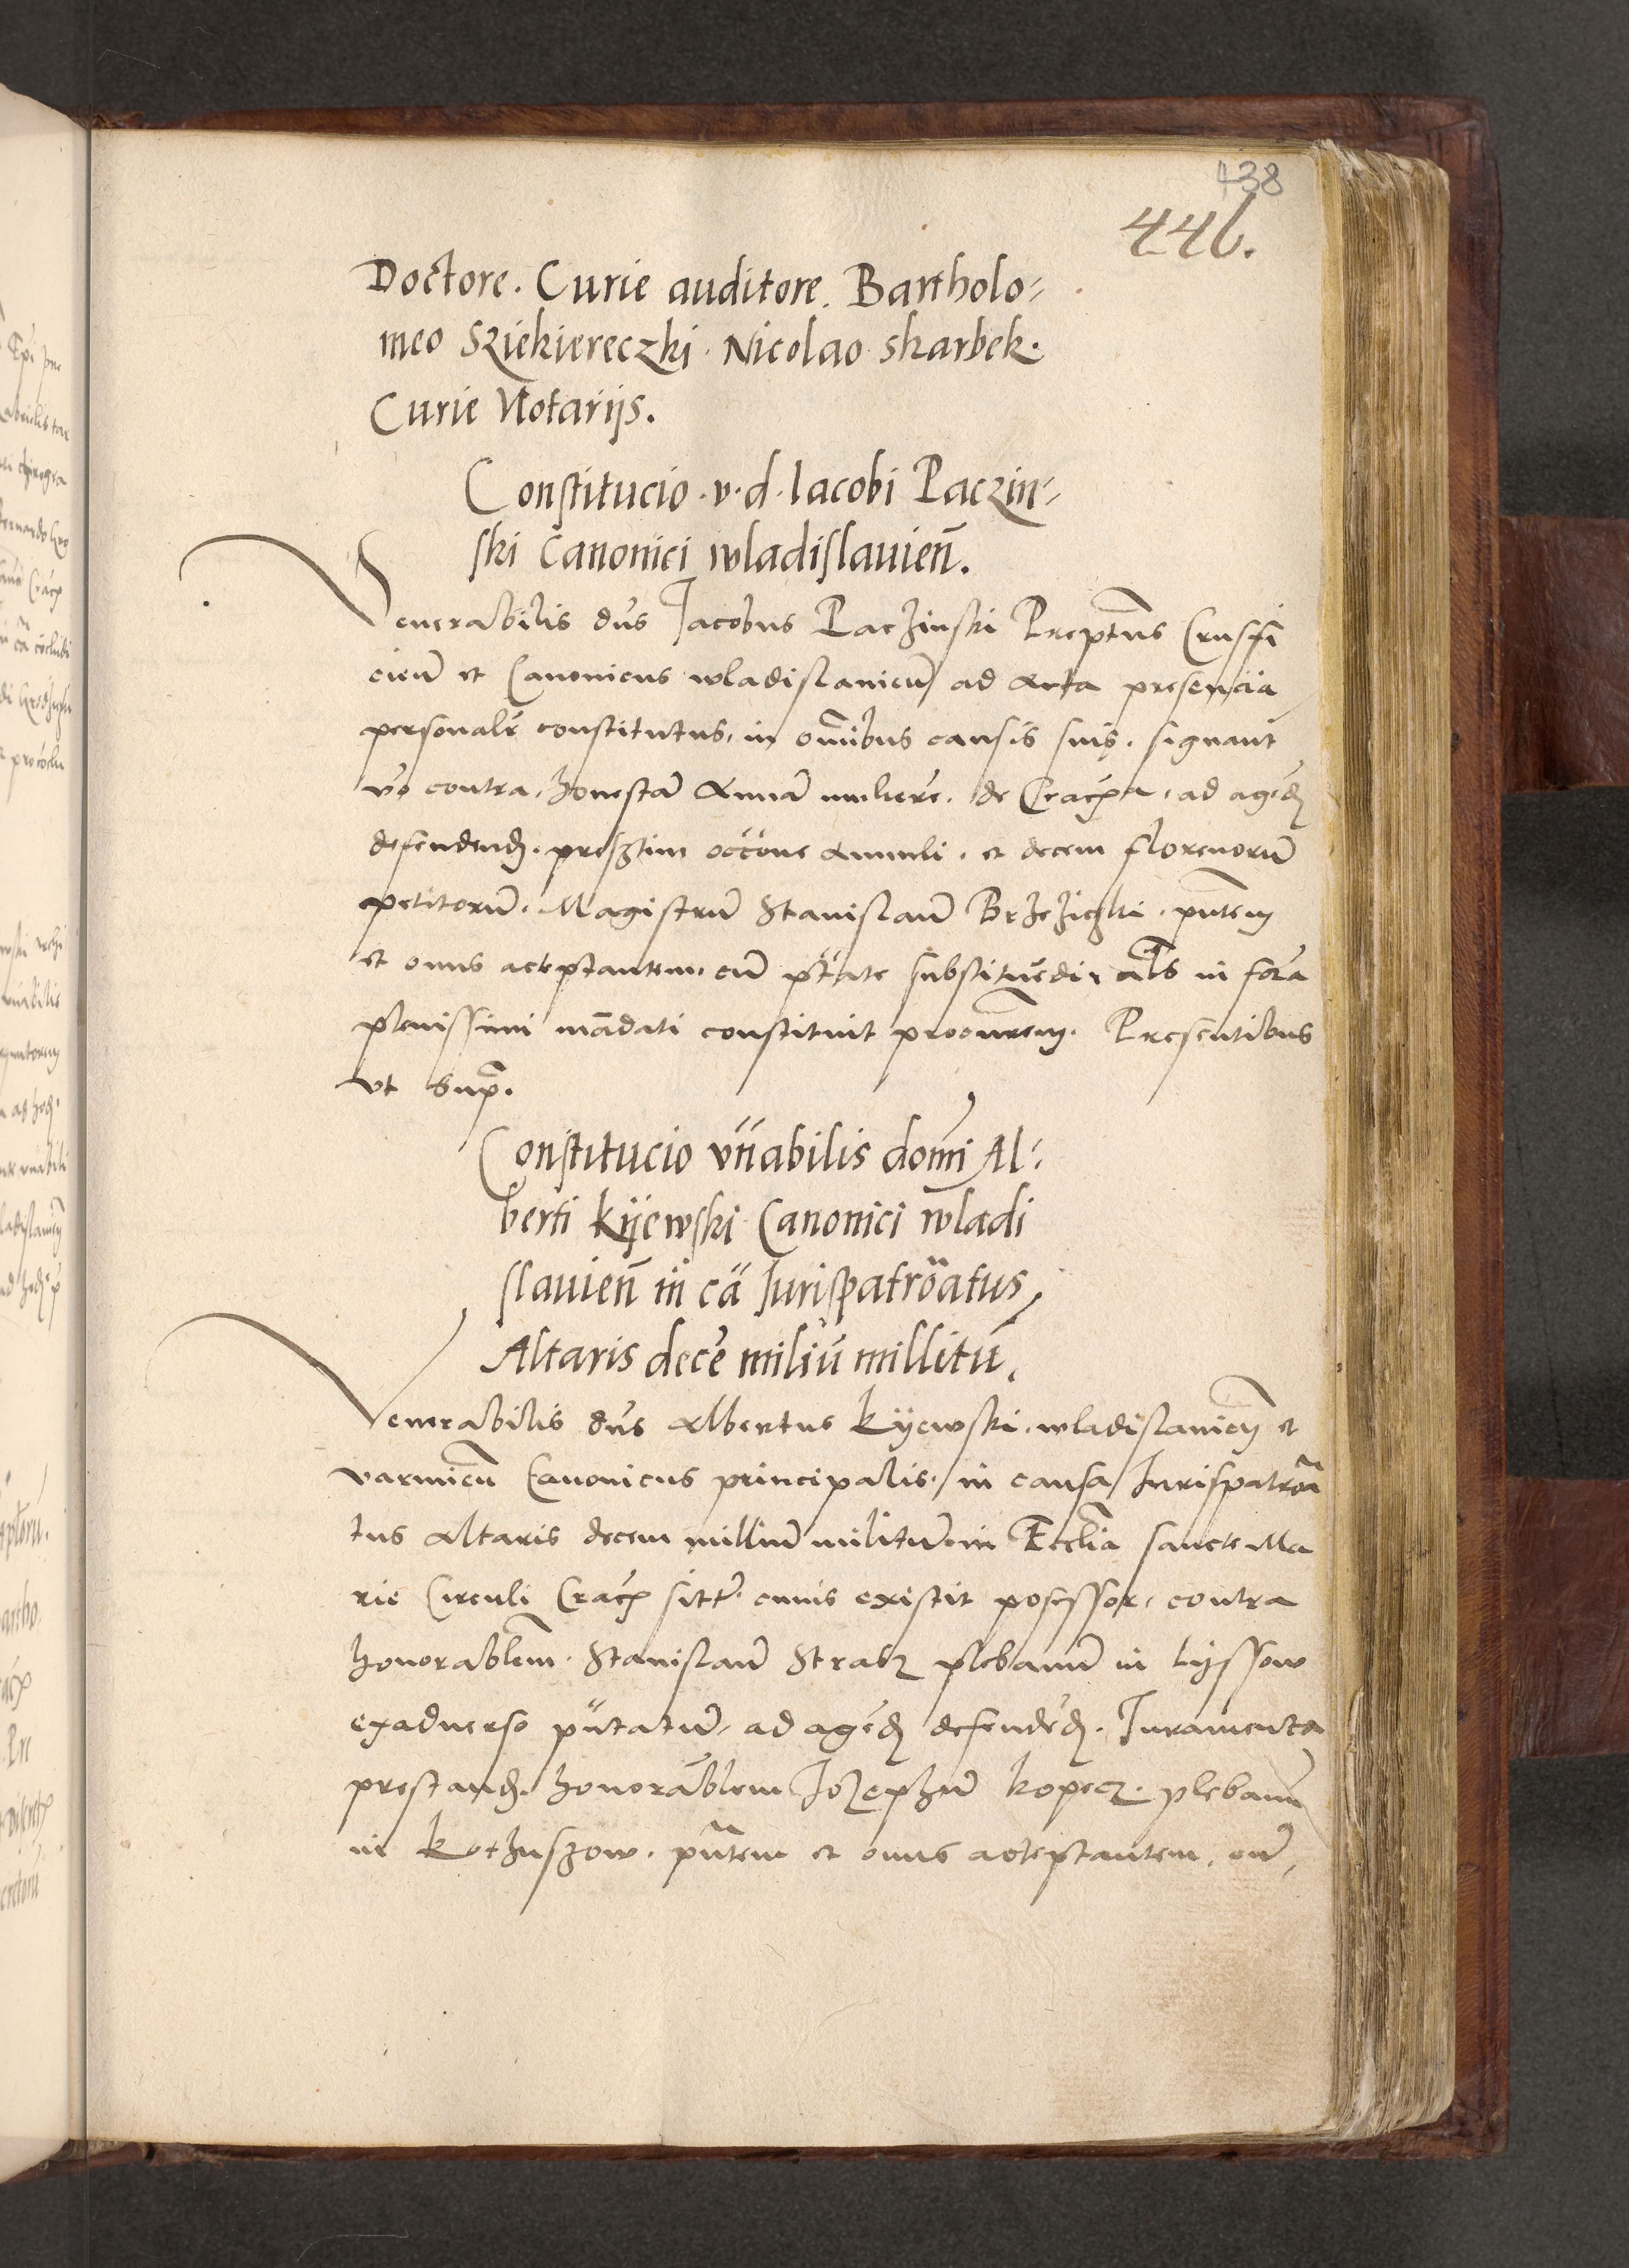 438
446.
Doctore. Curie auditore. Bartholo-
meo Sziekiereczki. Nicolao skarbek.
Curie Notarijs.
Constitucio. v. d. Iacobi Paczin-
ski Canonici wladislauien̄.
Venerabilis dn̄s Jacobus Paczinski Prepn̄tus Crussfi
cien̄ et Canonicus wladislauien̄ ad Acta presencia
personalr̄ constitutus, in om̄ibus causis suis. signant
v̄o contra, honestā Annā muliere. de Crac̄ia, ad agēd
defendend. presertim occ̄one Annuli. et decem florenorū
petitorū. Magistrū Stanislaū Brzeziczki. pn̄tem
et onus acceptantem, cū p̄tate substituēdi, al̄s in for̄a
plenissimi mādati constituit procur̄rem. Presentibus
vt Supra.
Constitucio vn̄abilis domi Al-
berti Kijewski Canonici wladi
slauien̄ in cā Iurispatrōatus
Altaris decē miliū millitū.
Venerabilis dn̄s Albertus Kijewski. wladislauien̄ et
varmien̄ Canonicus principalis. in causa Iurispatrōa
tus Altaris decem millium militū in Eccl̄ia sancte Ma
rie Circuli Crac̄ sitt. cuius existit posessor, contra
honorabl̄em. Stanislaū Strabz plebanū in Lijssow
exaduerso pūtatū, ad agēd defendēd. Iuramenta
prestand. honorāblem Iozephū Kopecz. plebanū
in Kothuszow. pn̄tem et onus acceptantem, cū,